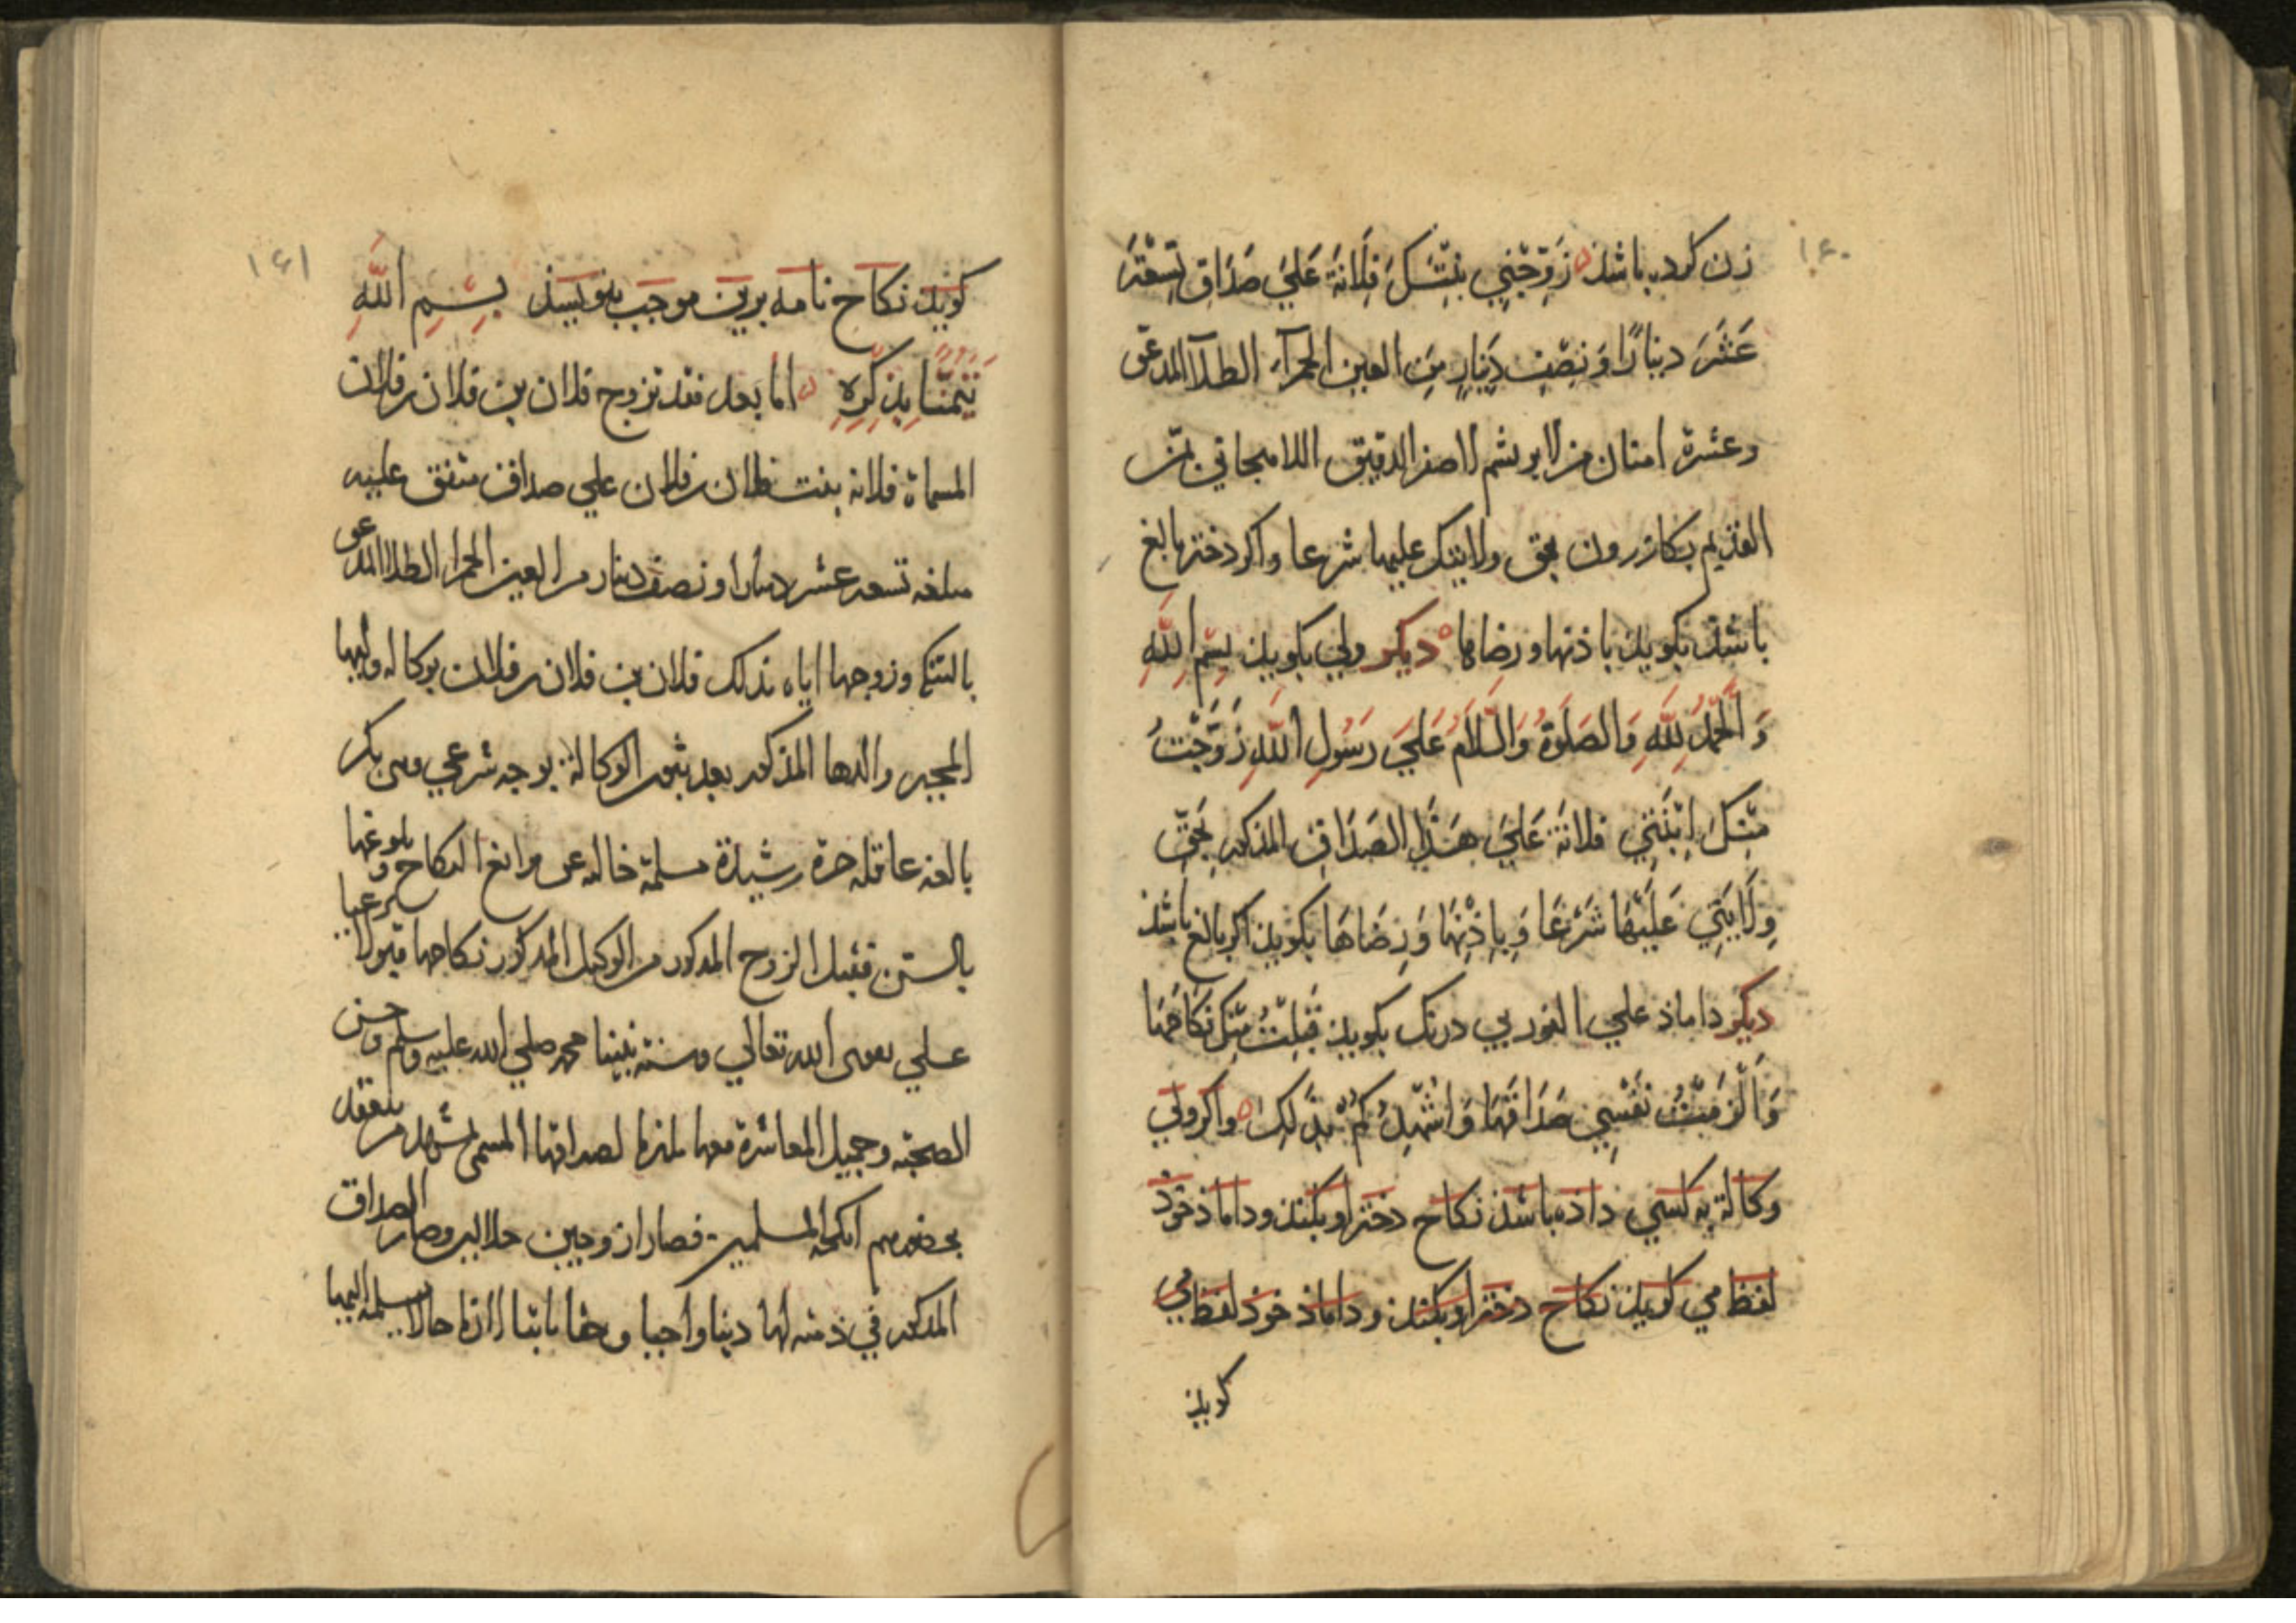 ۱۶۰
زن کرده باشذ زَوِّجْنِي بِنْتَكَ فُلَانَةَ عَلَيَ صَدَاقِ تِسْعَةَ
عَشَرَ دینارًا وَ نِصْفِ دِینَارٍ مِنَ العین الحمرآء الطلآ المدعو
وعشرة امنان من الابریشم الاصفر الدقیق اللاهجاني بمن
القدیم بکازرون بحق ولایتک علیها شرعا واکر دختر بالغ
باشذ بکویذ باذنها و رضاها دیکر ولي بکویذ بِسْمِ اللّٰهِ
وَ الْحَمْدُ لِلّٰهِ وَالصَلَوةُ وَالسَّلَامُ عَلَيَ رَسُولِ اللّٰهِ زَوَّجْتُ
مِنْكَ اِبْنَتِي فلانَةَ عَلَيَ هَذَا الصَدَاقِ المذکور بِحَقِّ
وِلَایَتِي عَلَیْهَا شَرْعًا وَ بِاِذْنِهَا وَ رِضَاهَا بکویذ اکر بالغ باشذ
دیکر داماذ علي الفور بي درنک بکویذ قَبِلْتُ مِنْكَ نِکَاحَهَا
وَ اَلْزَمْتُ نَفْسِي صَدَاقَهَا وَ اُشْهِدُکُمْ بِذَلِکَ واکر ولي
وکالة به کسي داذه باشذ نکاح دختر او بکنذ و داماذ خوذ
لفظ مي کویذ نکاح دختر او بکنذ و داماذ خوذ لفظ مي
کویذ
۱۶۱
کویذ نکاح نامه برین موجب بنویسذ بِسْمِ اللّٰهِ
تَیَمُّنًا بِذِکْرِهِ اما بعد فقد تزوج فلان بن فلان بن فلان
المسماة فلانه بنت فلان بن فلان علي صداق متفق علیه
مبلغه تسعه عشر دینارا و نصف دینار من العین الحمرا الطلا المدعو
وزوجها ایاه بذلک فلان بن فلان بن فلان بوکاله ولیها
المجبر والدها المذکور بعد ثبوت الوکالة بوجه شرعي وهي بکر
بالغه عاقله حرة رشیدة مسلمة خالیه عن موانع النکاح و بلوغها
بالسن فقبل الزوج المذکور من الوکیل المذکور نکاحها قبولا شرعیا
علي تقوی الله تعالي وسنة نبینا محمد صلي الله علیه وسلم وحسن
الصحبه و جمیل المعاشرة معها ملتزما لصداقها المسمی
بحضورهم انکحة المسلمین فصارا زوجین حلالین وصار الصداق
المذکور في ذمته لها دینا واجبا و حقا ثابتا لازما حالا